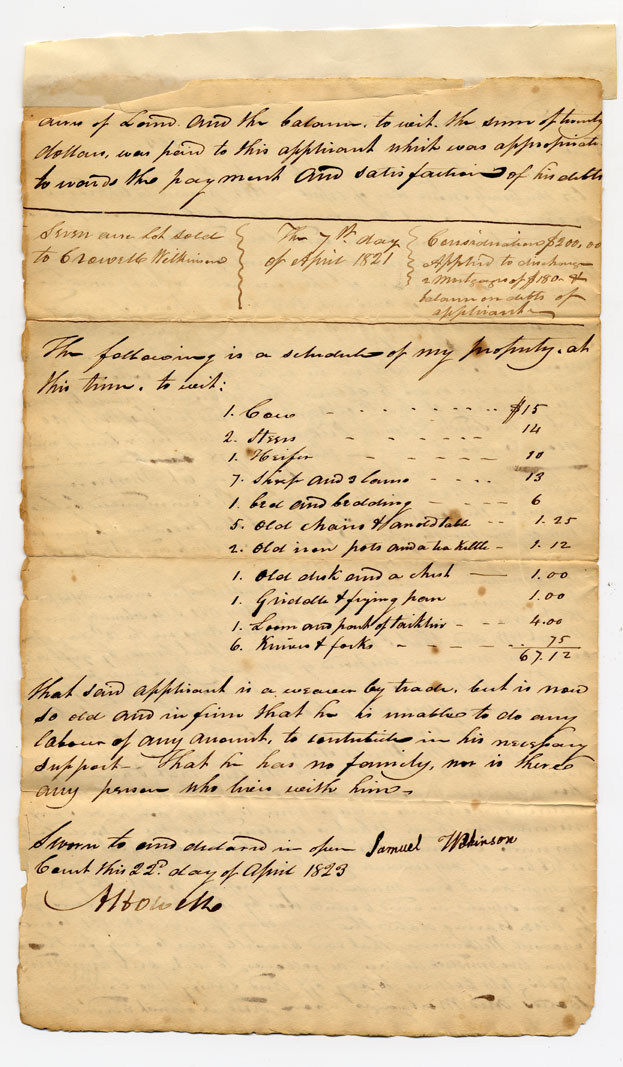 acres of Land. and the balance, to wit. the sum of twenty
dollars, was paid to this applicant which was appropriate
towards the payment and satisfaction of his debts
Seven acre lot sold
to Crowell Wilkinson
The 7th day
of April 1821
Consideration $200,00
Applied to discharge
a Mortgage of $180 &
balance on debts of
applicant
The following is a schedule of my property at
this time. to wit:
1. Cow $15
2. Steers 14
1. Heifer 10
7. Sheep and 3 lambs 13
1. bed and bedding 6
5. Old chairs & an old table 1.25
2. Old iron pots and a tea kettle 1.12
1. Old desk and a chest 1.00
1. Griddle & frying pan 1.00
1. Loom and part of tacklin 4.00
6. Knives & forks 75
67.12
That said applicant is a weaver by trade, but is now
so old and infirm that he is unable to do any
labour of any amount, to contribute in his necessary
support. That he has no family, nor is there
any person who lives with him.
Sworn to and declared in open
Samuel Wilkinson
Court this 22d. day of April 1823
A Howell